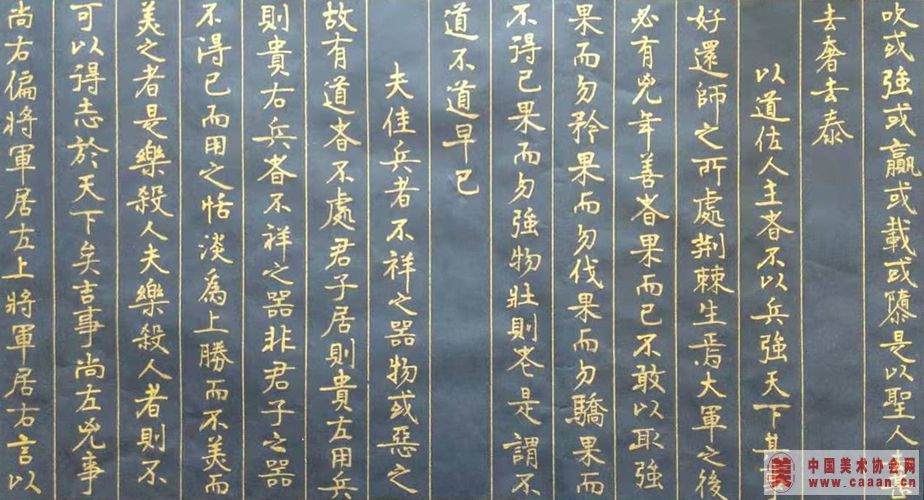 吹或強或羸或載或隳是以聖人
去奢去泰
以道佐人主者不以兵強天下其
好還師之所處荆棘生焉大軍之後
必有凶年善者果而已不敢以取強
果而勿矜果而勿伐果而勿驕果而
不得已果而勿強物壯則老是謂不
道不道早已
夫佳兵者不祥之器物或惡之
故有道者不處君子居則貴左用兵
則貴右兵者不祥之器非君子之器
不得已而用之恬淡爲上勝而不美而
美之者是樂殺人夫樂殺人者則不
可以得志於天下矣吉事尚左兇事
尚右偏將軍居左上將軍居右言以
美
中国美术协会网
www.caaan.cn